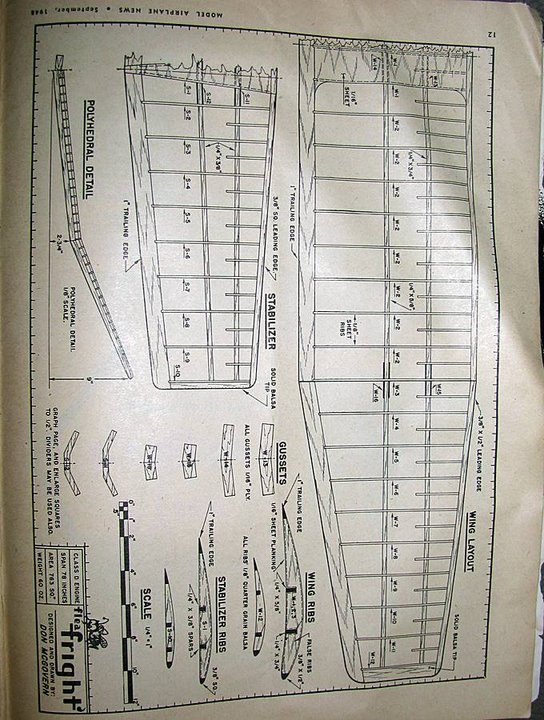 12
MODEL AIRPLANE NEWS • September, 1948
WING LAYOUT
W-1
W-2
W-2
W-2
W-2
W-2
W-2
W-2
W-3
W-4
W-5
W-6
W-7
W-9
W-10
W-11
W-12
W-15
W-16
1/16"
SHEET
1/4" X 3/4"
1/4" X 5/8"
1/8"
SHEET
RIBS
1" TRAILING EDGE
3/8" X 1/2" LEADING EDGE
SOLID BALSA TIP
STABILIZER
S-1
S-2
S-3
S-4
S-5
S-6
S-7
S-8
S-9
S-10
S-11
S-12
1/4" X 3/8"
3/8" SQ. LEADING EDGE
1" TRAILING EDGE
SOLID BALSA
TIP
POLYHEDRAL DETAIL
2-3/4"
9"
POLYHEDRAL DETAIL
1/8" SCALE.
GUSSETS
W-13
W-14
ALL GUSSETS 1/16" PLY.
GRAPH PAGE AND ENLARGE SQUARES
TO 1/2". DIVIDERS MAY BE USED ALSO.
WING RIBS
1" TRAILING EDGE
1/16" SHEET PLANKING
1/4" X 5/8"
FALSE RIBS
3/8" X 1/2"
1/4" X 3/4"
W-12
ALL RIBS 1/8" QUARTER GRAIN BALSA
STABILIZER RIBS
TRAILING EDGE
S-1
3/8" SQ.
1/4" X 3/8" SPARS
S-10
SCALE 1/4"=1"
0 2 4 6 8 10 12
CLASS D ENGINE
SPAN 78 INCHES
AREA 763 SQ"
WEIGHT 60 OZ.
flea
fright
DESIGNED AND DRAWN BY:
DON McGOVERN